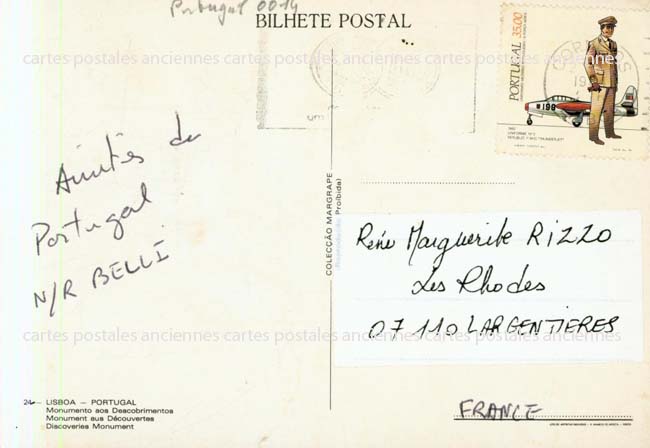 Portugal 0014
BILHETE POSTAL
PORTUGAL 35.00
CORREIOS
19
198
cartes postales anciennes cartes postales anciennes cartes postales anciennes
Amitiés du
Portugal
N/R BELLI
COLECÇÃO MARGRAPE
Proibida)
René Marguerite RIZZO
Les Rhodes
07110 LARGENTIERES
FRANCE
cartes postales anciennes cartes postales anciennes cartes postales anciennes
24 – LISBOA – PORTUGAL
Monumento aos Descobrimentos
Monument aus Découvertes
Discoveries Monument